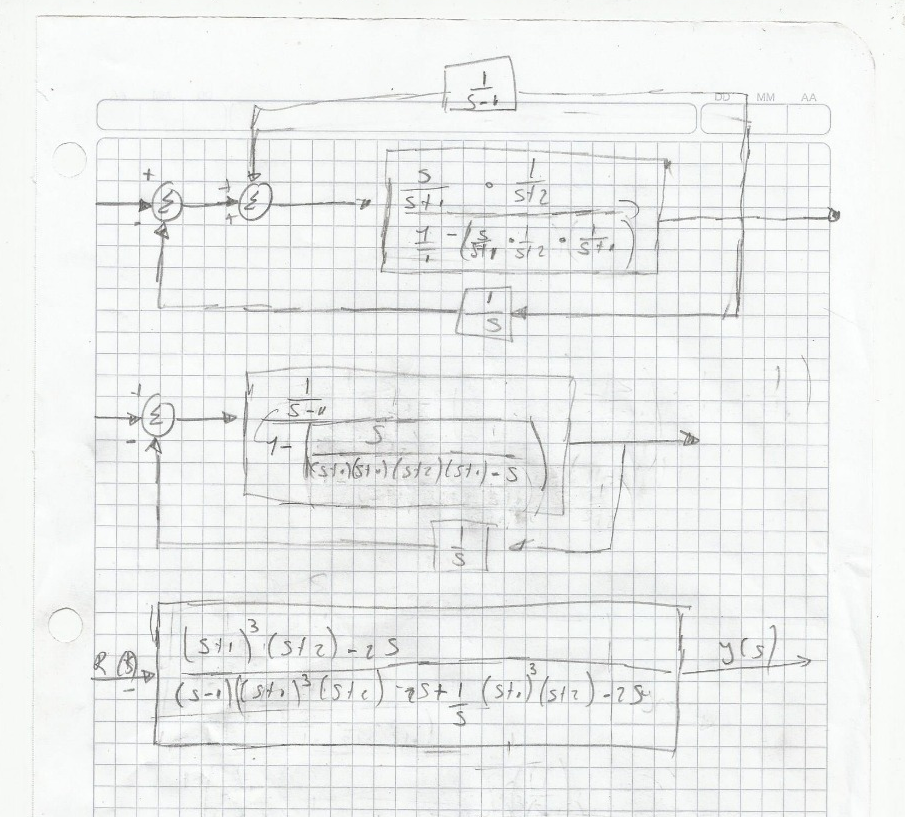 1/(s-1)
DD MM AA
+ Σ -
+ Σ +
s/(s+1) · 1/(s+2)
1/1 - (s/(s+1) · 1/(s+2) · 1/(s+1))
1/s
+ Σ -
1/(s-1)
1 - (s/((s+1)(s+1)(s+2)(s+1)-s))
1/s
R(s)
(s+1)³(s+2)-2s
(s-1)((s+1)³(s+2)-2s+1/s (s+1)³(s+2)-2s
y(s)